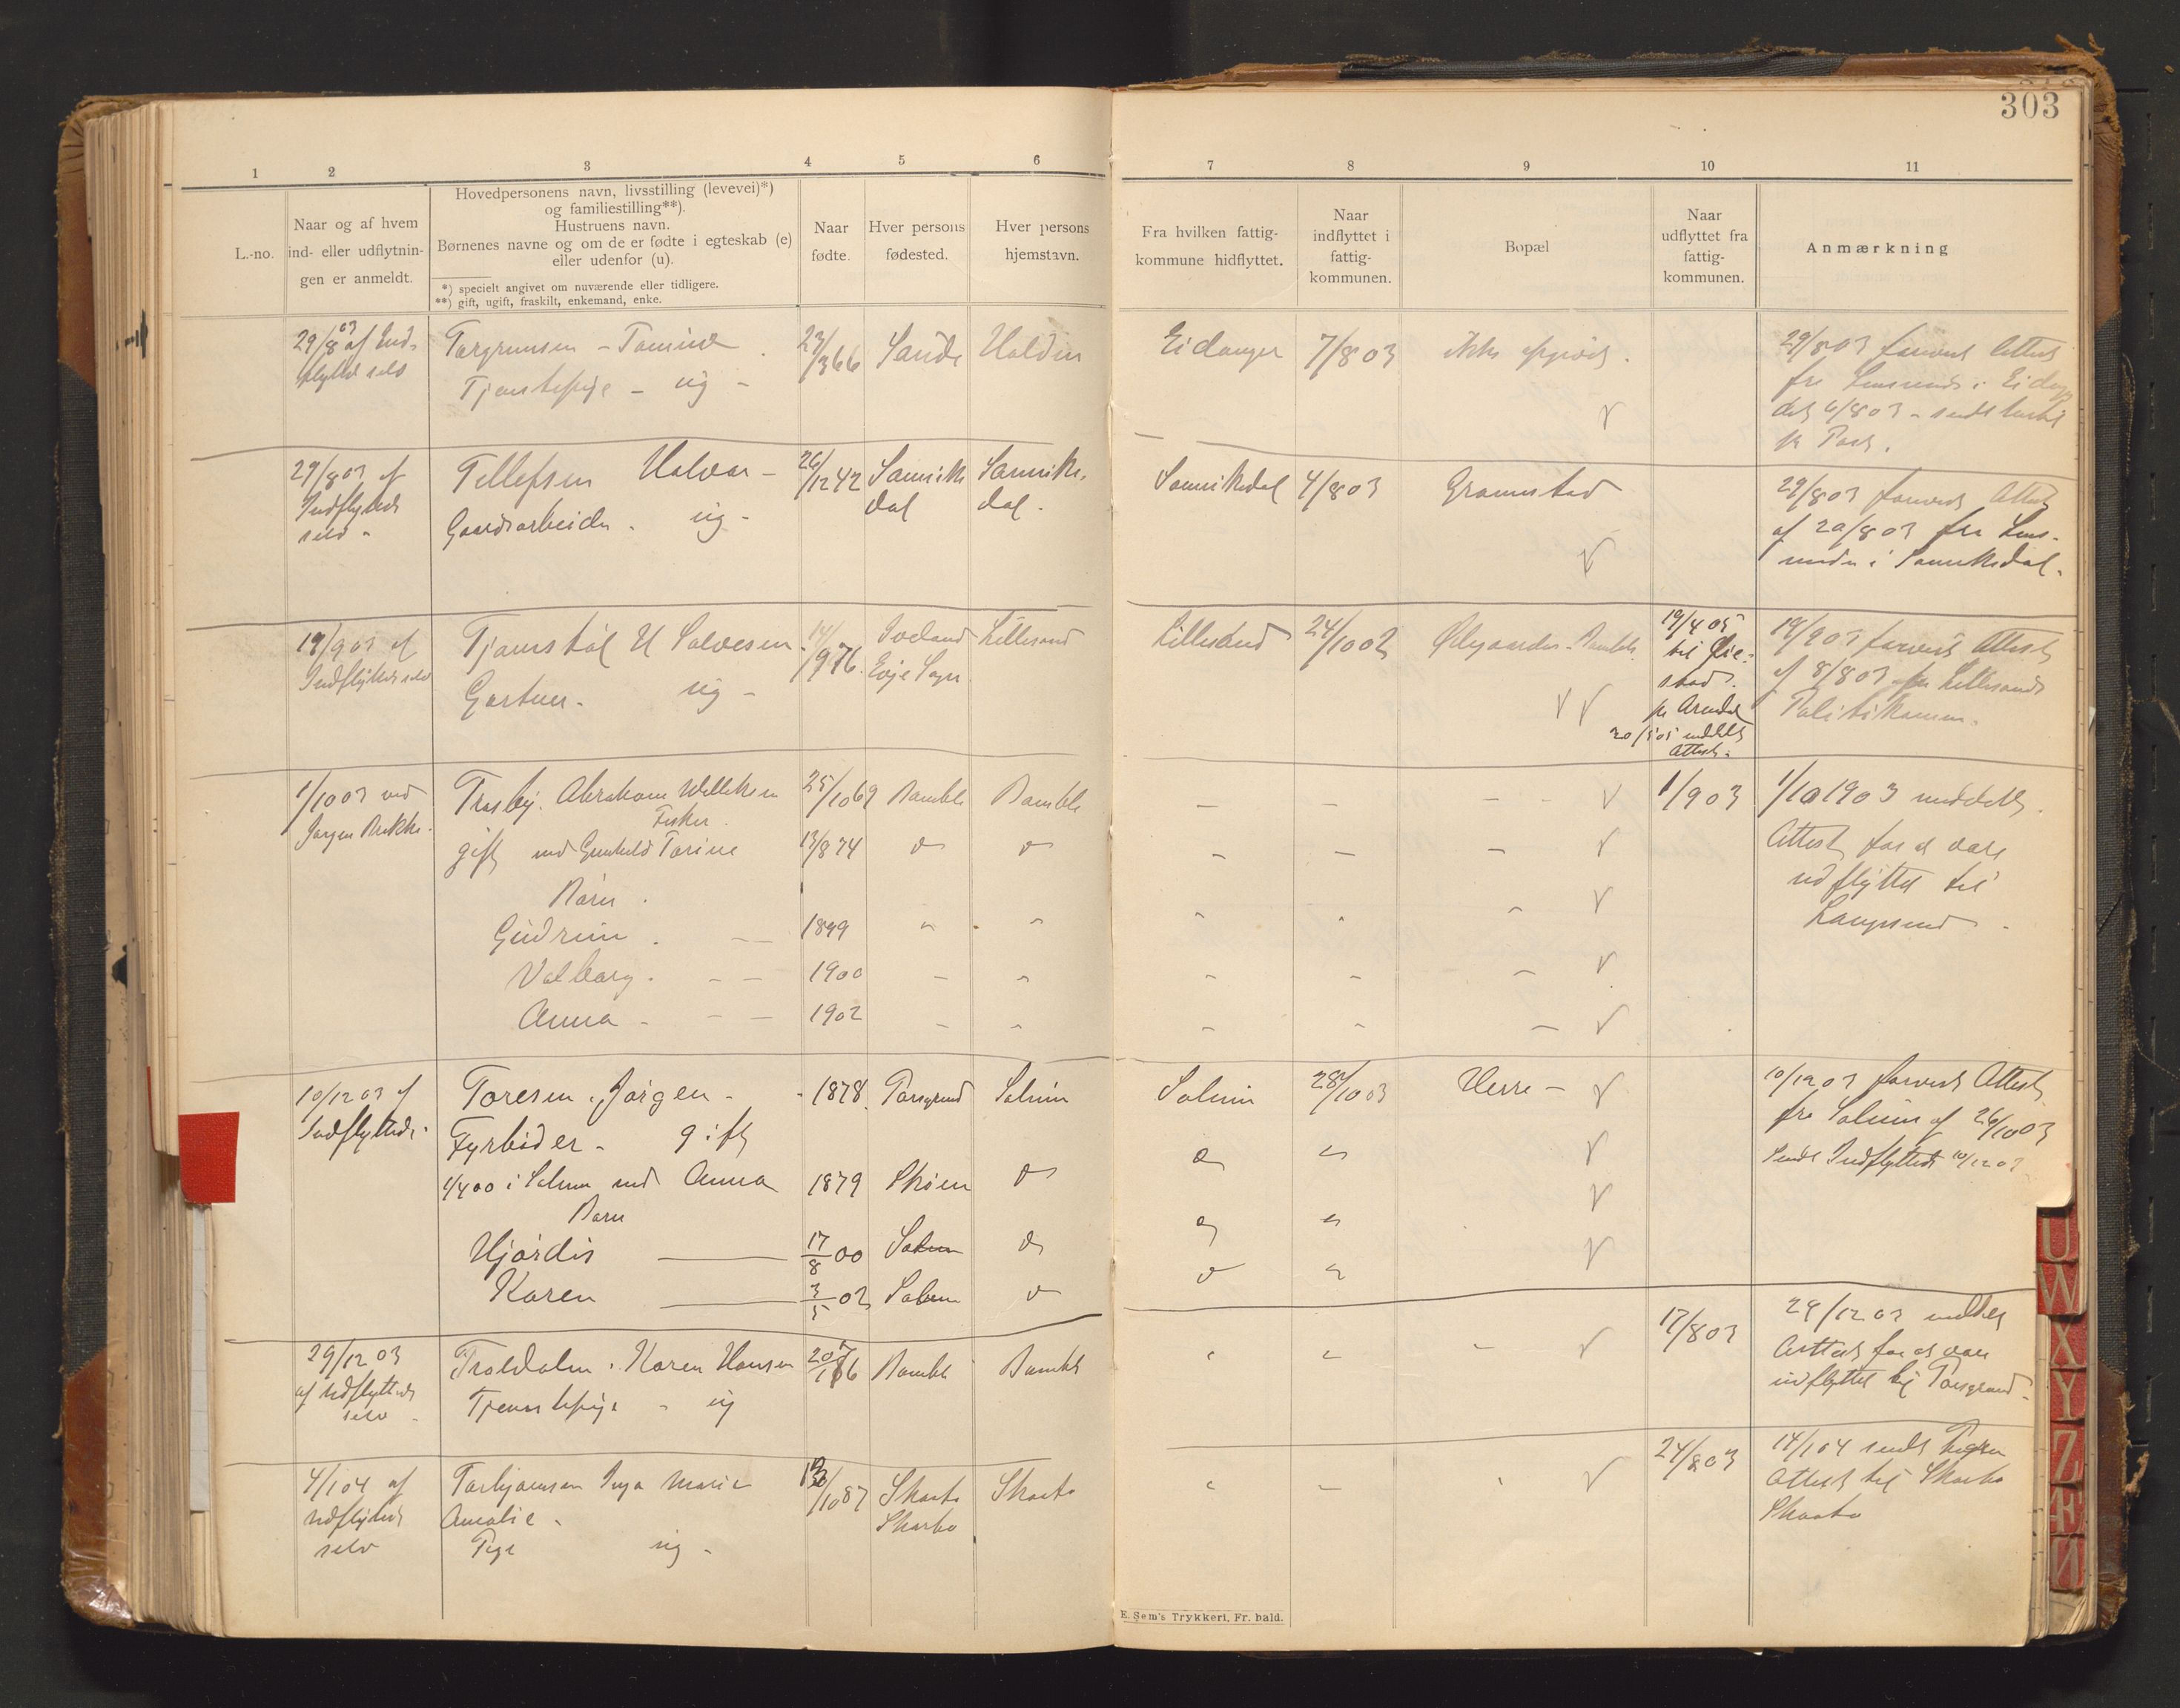 303
1 2 3 4 5 6 7 8 9 10 11
L.-no.
Naar og af hvem
ind- eller udflytnin-
gen er anmeldt.
Hovedpersonens navn, livsstilling (levevei)*)
og familiestilling**).
Hustruens navn.
Børnenes navne og om de er fødte i egteskab (e)
eller udenfor (u).
*) specielt angivet om nuværende eller tidligere.
**) gift, ugift, fraskilt, enkemand, enke.
Naar
fødte.
Hver persons
fødested.
Hver persons
hjemstavn.
Fra hvilken fattig-
kommune hidflyttet.
Naar
indflyttet i
fattig-
kommunen.
Bopæl
Naar
udflyttet fra
fattig-
kommunen.
Anmærkning
29/8 03 af Ind-
flyttede selv
Torgrimsen - Tomine
Tjenstepige - ug -
23/3 66
Sande
Holden
Eidanger
7/8 03
29/8 03 forevist Attest
fra Lensmand i Eidang
dat 6/8 03 - sendt
pr Post.
29/8 03 af
Indflyttede
selv -
Tellefsen Halvor -
Gaardsarbeider - ug -
26/12 42
Sannike
dal
Sannike-
dal -
Sannikedal
4/8 03
Gromstad
29/8 03 forevist Attest
af 20/8 03 fra Lens-
manden i Sannikedal.
19/9 03 af
Indflyttede selv
Tjamstøl H Salvesen
Gartner - ug -
14/9 76.
Iveland
Evje Sogn
Lillesand
Lillesand
24/10 02
Ødegaarden - Bamble
19/4 05
til Øie-
stad.
pr Arendal
20/5 05 meddelt
Attest -
19/9 03 forevist Attest
af 8/8 03 fra Lillesands
Politikammer.
1/10 03 ved
Jørgen Brekke.
Trosby. Abraham Willeksen
Fisker.
gift med Gunhild Torine
Børn.
Gudrun. - -
Valborg. - -
Anna - - -
25/10 69
13/8 74
1899
1900
1902
Bamble
Bamble
1/9 03
1/10 1903 meddelt
Attest for at være
udflyttet til
Langesund
10/12 03 af
Indflyttede
Toresen, Jørgen -
Fyrbøder - gift
1/4 00 i Solum med Anna
Børn
Hjørdis
Karen
1878
1879
17/8 00
3/5 02
Porsgrund
Skien
Solum
Solum
Solum
Solum
28/10 03
Herre -
10/12 03 forevist Attest
fra Solum af 26/10 03
Sendt Indflyttede 10/12 03
29/12 03
af udflyttede
selv -
Troldalen. Karen Hansen
Tjenstepige - ug
Bamble
Bamble
17/8 03
29/12 03 meddelt
Attest for at være
udflyttet til Porsgrund -
4/1 04 af
udflyttede
selv
Torbjørnsen Inga Marie
Amalie -
Pige ug -
/10 87
Skaatø
Skaatø
24/8 03
14/1 04 sendt
Attest til
Skaatø
E. Sem's Trykkeri, Fr. hald.
U
W
X
Y
Z
Æ
Ø